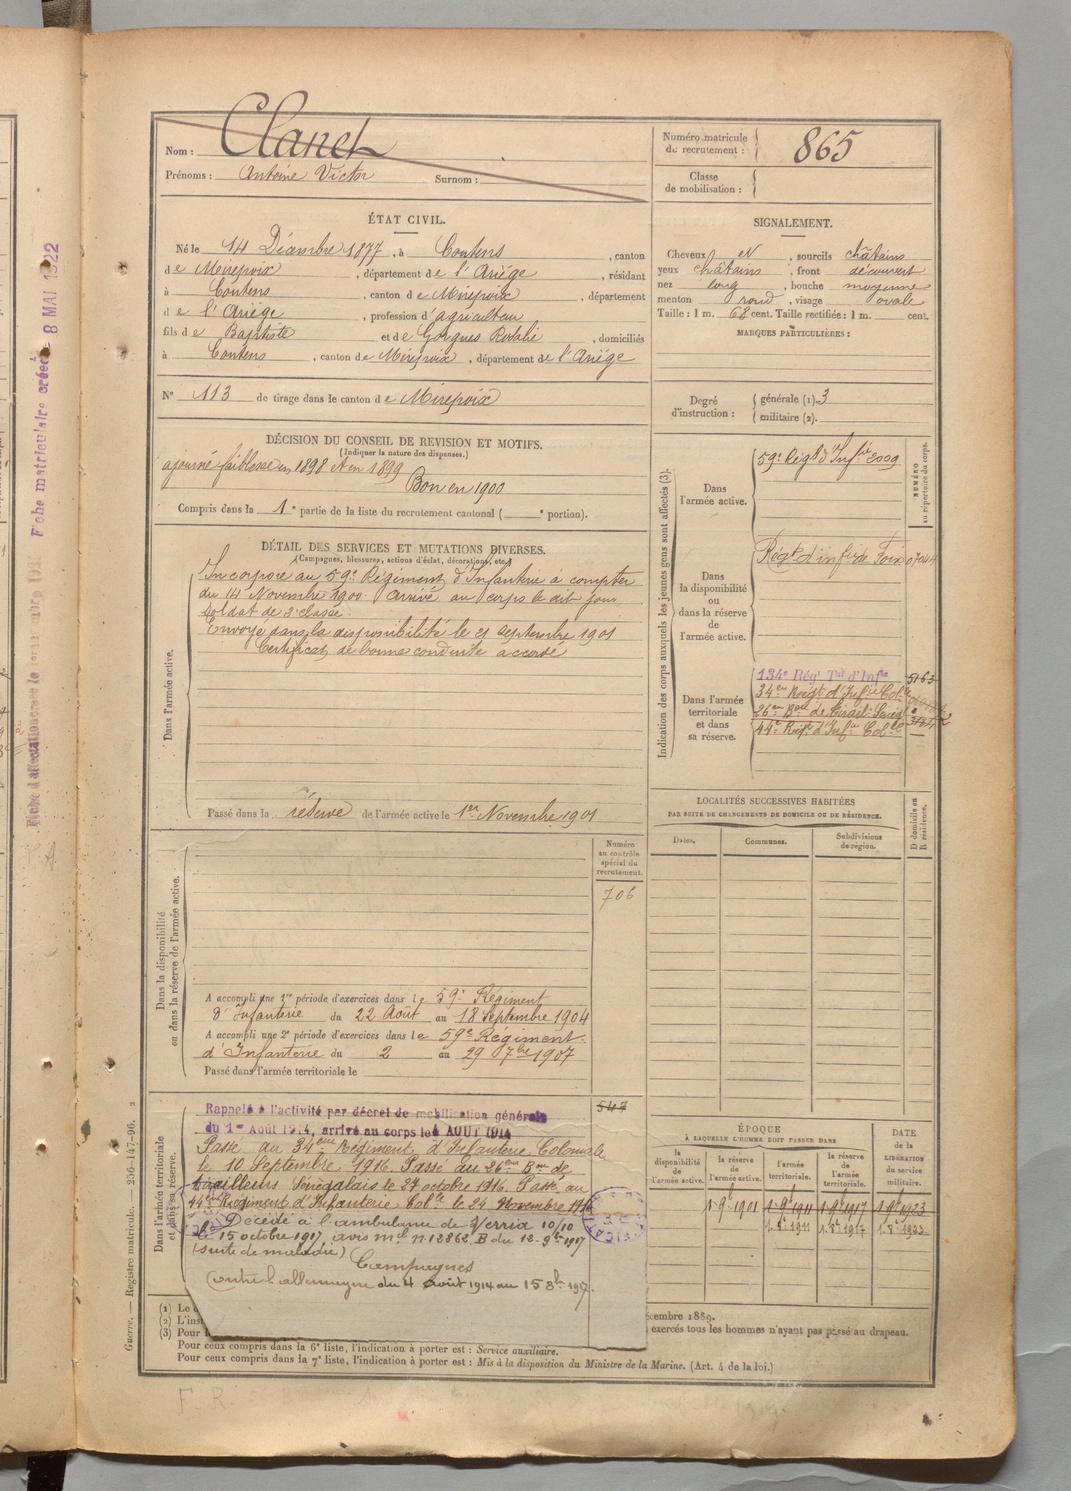 Nom : Clanet
Prénoms : Antoine Victor Surnom :
Numéro matricule de recrutement : 865
Classe de mobilisation :
ÉTAT CIVIL.
Né le 14 Décembre 1877, à Coutens, canton
de Mirepoix, département de l'Ariège, résidant
à Coutens, canton de Mirepoix, département
de l'Ariège, profession d'agriculteur
fils de Baptiste et de Gorgues Rosalie, domiciliés
à Coutens, canton de Mirepoix, département de l'Ariège
N° 113 de tirage dans le canton de Mirepoix
SIGNALEMENT.
Cheveux et, sourcils châtains
yeux châtains, front découvert
nez long, bouche moyenne
menton rond, visage ovale
Taille : 1 m. 68 cent. Taille rectifiée : 1 m. cent.
MARQUES PARTICULIÈRES :
Degré d'instruction : générale (1). 3
militaire (2).
DÉCISION DU CONSEIL DE REVISION ET MOTIFS.
(Indiquer la nature des dispenses.)
ajourné faiblesse en 1898 et en 1899
Bon en 1900
Compris dans la 1e partie de la liste du recrutement cantonal ( e portion).
DÉTAIL DES SERVICES ET MUTATIONS DIVERSES.
(Campagnes, blessures, actions d'éclat, décorations, etc.)
Dans l'armée active.
Incorporé au 59e Régiment d'Infanterie à compter
du 14 Novembre 1900. Arrivé au corps le dit jour
soldat de 2e classe.
Envoyé dans la disponibilité le 21 septembre 1901
Certificat de bonne conduite accordé
Passé dans la réserve de l'armée active le 1er Novembre 1901
Indication des corps auxquels les jeunes gens sont affectés (3).
NUMÉRO au répertoire du corps.
Dans l'armée active.
59e Régt d'Infie 3009
Dans la disponibilité ou dans la réserve de l'armée active.
Régt d'infie de Foix 07044
Dans l'armée territoriale et dans sa réserve.
134e Rég' Tal d'Infie 5163
34eme Régt d'Infie Col.
26eme Bon de Tirail. Sénég.
44e Régt d'Infie Colle
LOCALITÉS SUCCESSIVES HABITÉES
PAR SUITE DE CHANGEMENTS DE DOMICILE OU DE RÉSIDENCE.
Dates. Communes. Subdivisions de région. D domicile ou R résidence.
Dans la disponibilité ou dans la réserve de l'armée active.
Numéro au contrôle spécial du recrutement.
706
A accompli une 1re période d'exercices dans le 59e Régiment
d'Infanterie du 22 Août au 18 Septembre 1904
A accompli une 2e période d'exercices dans le 59e Régiment
d'Infanterie du 2 au 29 7bre 1907
Passé dans l'armée territoriale le
Dans l'armée territoriale et dans sa réserve.
547
Rappelé à l'activité par décret de mobilisation générale
du 1er Août 1914, arrivé au corps le 4 AOUT 1914
Passé au 34eme Régiment d'Infanterie Coloniale
le 10 Septembre 1916. Passé au 26eme Bon de
tirailleurs Sénégalais le 27 octobre 1916. Passé au
44eme Régiment d'Infanterie Colle le 24 Novembre 1916
Décédé à l'ambulance de Verria 10/10
le 15 octobre 1917, avis mel n° 12862 B du 12-9bre 1917
(suite de maladie)
Campagnes
Contre l'allemagne du 4 août 1914 au 15 8bre 1917.
ÉPOQUE
À LAQUELLE L'HOMME DOIT PASSER DANS
la disponibilité de l'armée active. la réserve de l'armée active. l'armée territoriale. la réserve de l'armée territoriale.
DATE DE LA LIBÉRATION du service militaire.
(1) Le d
(2) L'ins
(3) Pour l
écembre 1889.
exercés tous les hommes n'ayant pas passé au drapeau.
Pour ceux compris dans la 6e liste, l'indication à porter est : Service auxiliaire.
Pour ceux compris dans la 7e liste, l'indication à porter est : Mis à la disposition du Ministre de la Marine. (Art. 4 de la loi.)
Guerre. — Registre matricule. — 236-147-96. 2
Fiche matriculaire créée le 8 MAI 1922
F. R.